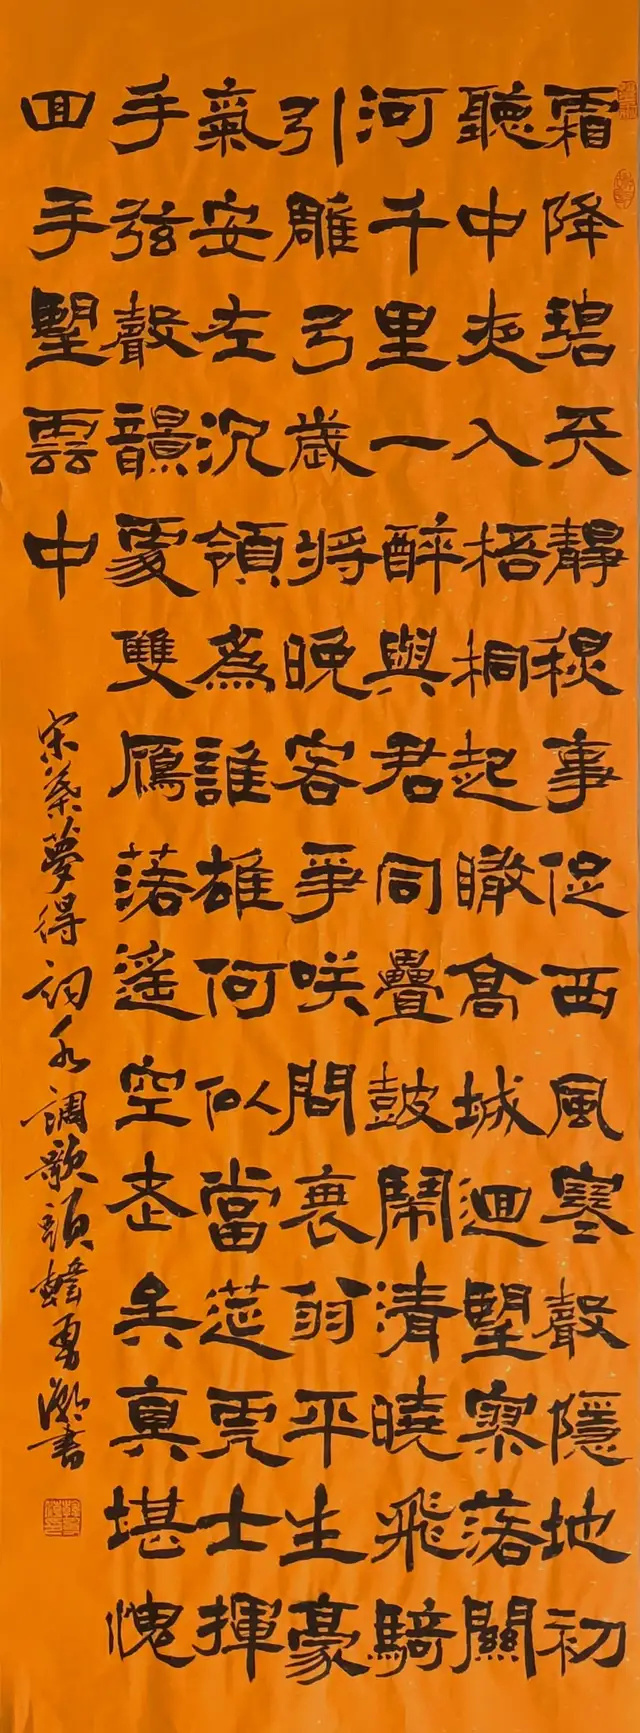 霜降碧天靜秋事促西風寒聲隱地初
聽中夜入梧桐起瞰高城迴望寥落關
河千里一醉與君同疊鼓鬧清曉飛騎
引雕弓歲將晚客爭咲問衰翁平生豪
氣安左沉領為誰雄何似當筵虎士揮
手弦聲韻處雙雁落遙空老矣真堪愧
回手望雲中
宋葉夢得詞水調歌頭韓勇書